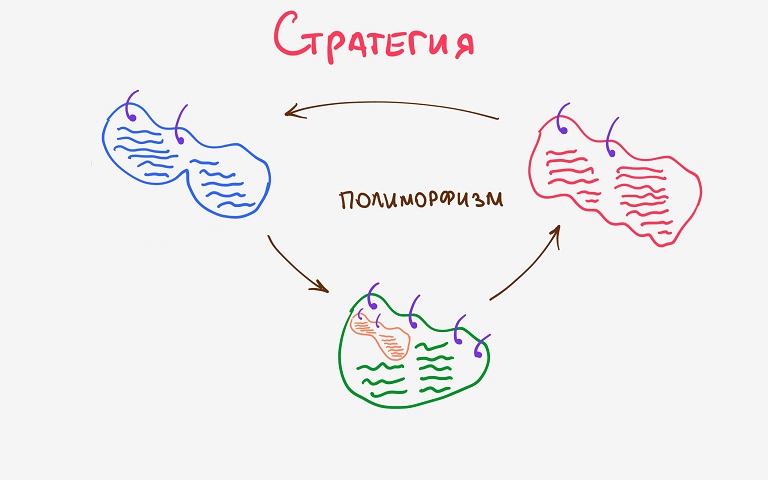 Стратегия
полиморфизм